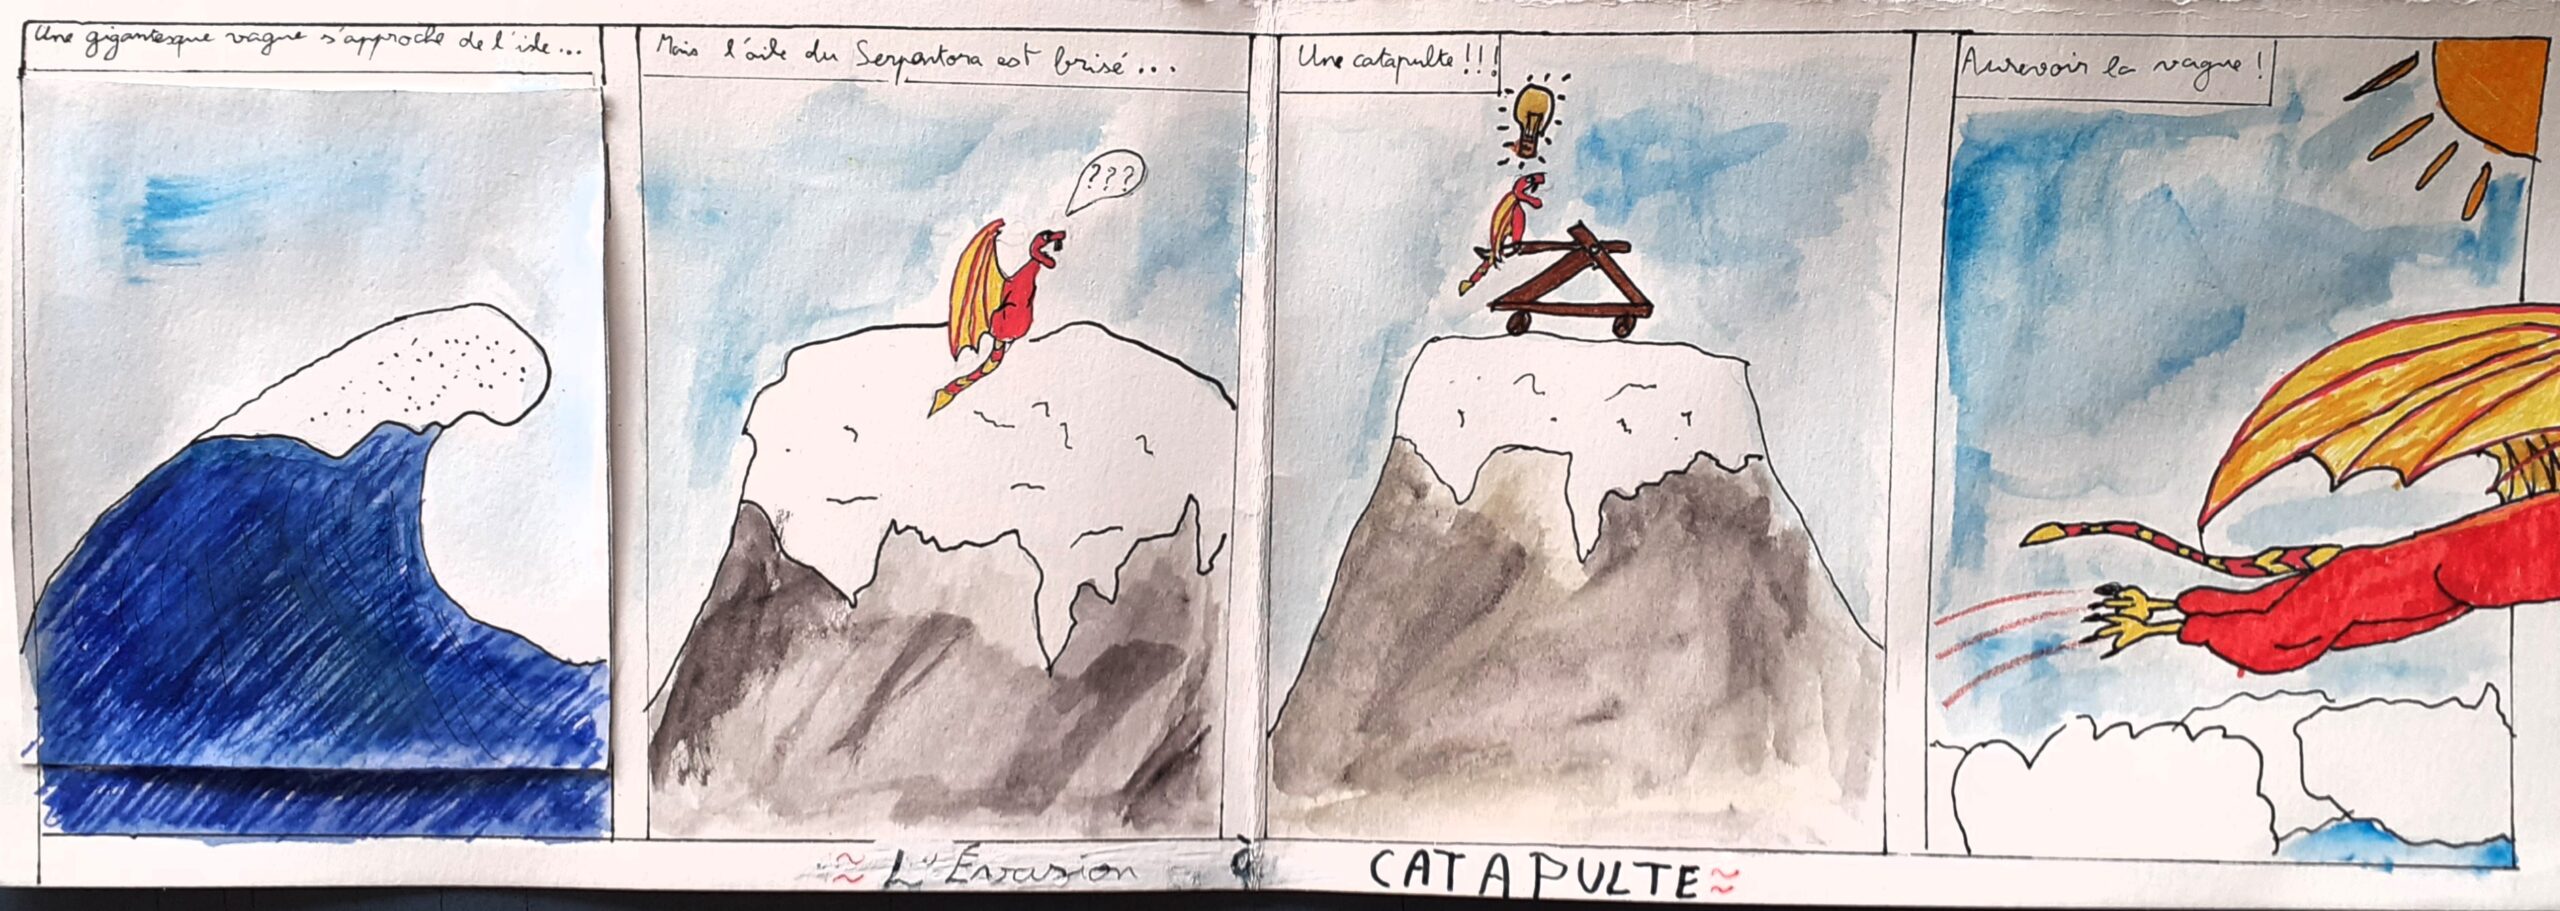 Une gigantesque vague s'approche de l'isle...
Mais l'aile du Serpentora est brisé...
???
Une catapulte!!!
Aurevoir la vague!
L'Évasion à CATAPULTE